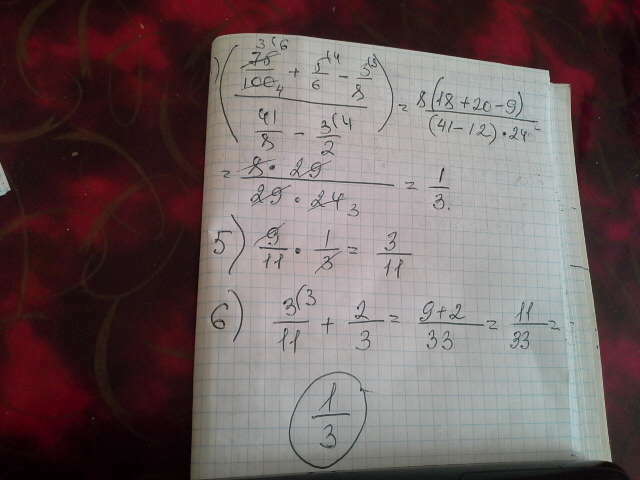 ) (75/100 + 5/6 - 3/8) / (41/8 - 3/2) = 8(18+20-9) / (41-12)·24 =
= 8·29 / 29·24 = 1/3.
5) 9/11 · 1/3 = 3/11
6) 3/11 + 2/3 = 9+2/33 = 11/33 =
1/3